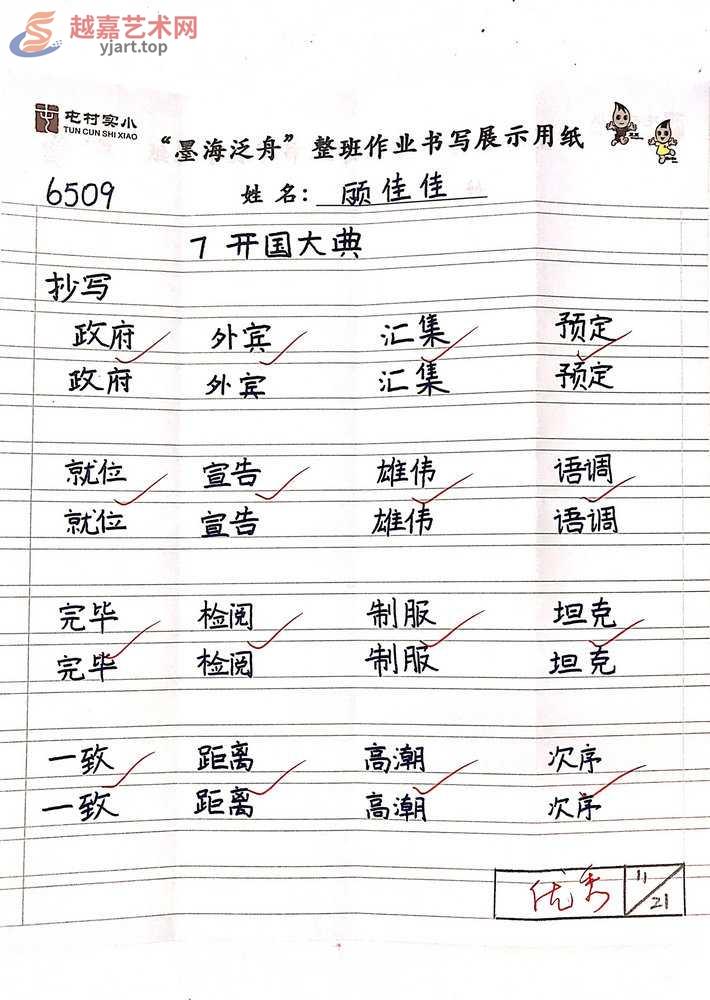 越嘉艺术网
yjart.top
屯村实小
TUN CUN SHI XIAO
“墨海泛舟”整班作业书写展示用纸
6509 姓名：顾佳佳
7 开国大典
抄写
政府 外宾 汇集 预定
政府 外宾 汇集 预定
就位 宣告 雄伟 语调
就位 宣告 雄伟 语调
完毕 检阅 制服 坦克
完毕 检阅 制服 坦克
一致 距离 高潮 次序
一致 距离 高潮 次序
优秀 11/21